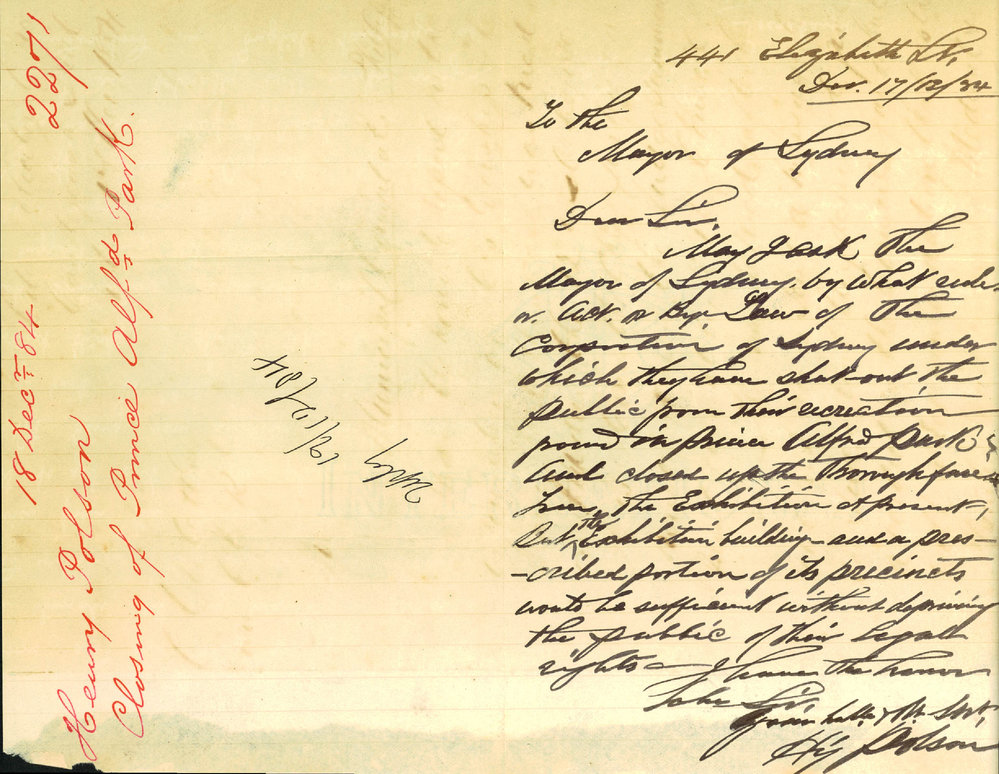 2271
18 Decr 84
Henry Polson
Closing of Prince Alfd Park.
19/12/84
441 Elizabeth St,
17/12/84
To the
Mayor of Sydney
Dear Sir,
May I ask the
Mayor of Sydney. by what rule.
or. Act. or Bye Law of the
Corporation of Sydney under
which they have shut out the
public from their recreation
in prince Alfred park
and closed up the thoroughfare
the Exhibition at present,
But the Exhibition building and a pres-
-cribed portion of its precincts
would be sufficient without depriving
the public of their legall
rights — I have the honor
to be Sir,
Your
Hy Polson